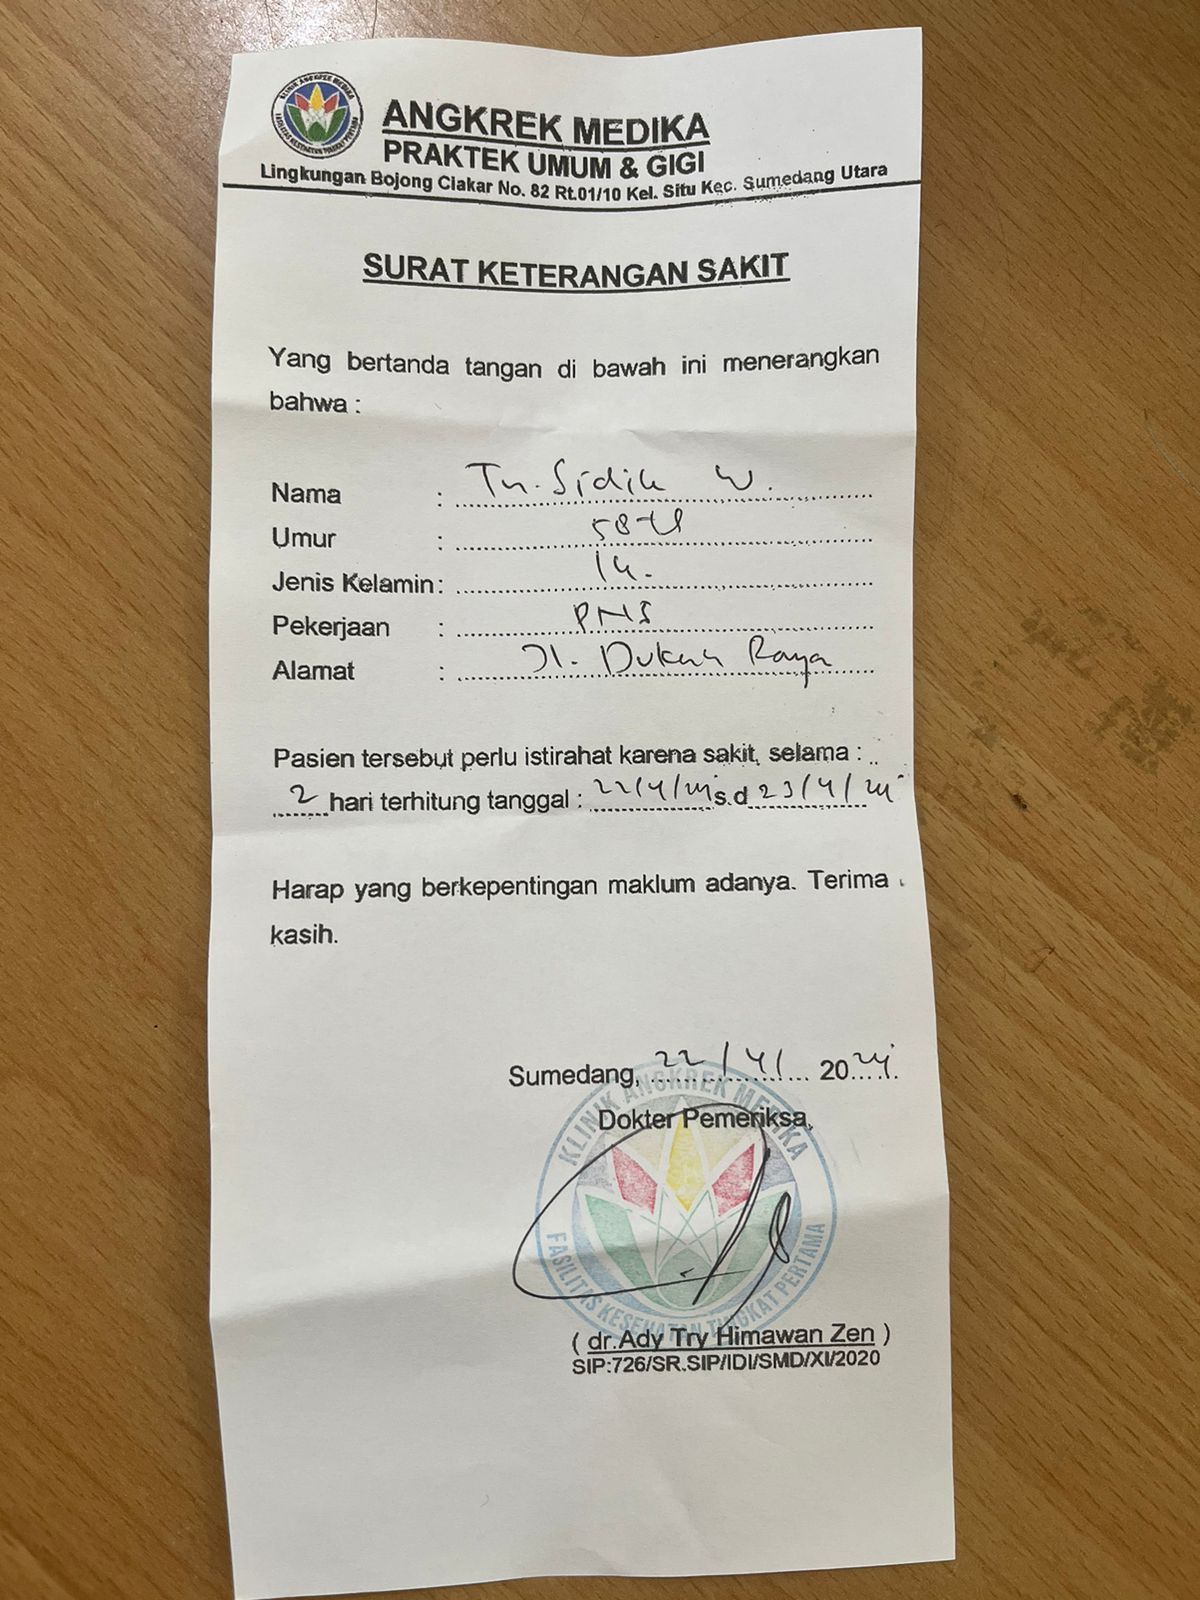 KLINIK ANGKREK MEDIKA
FASILITAS KESEHATAN TINGKAT PERTAMA
ANGKREK MEDIKA
PRAKTEK UMUM & GIGI
Lingkungan Bojong Ciakar No. 82 Rt.01/10 Kel. Situ Kec. Sumedang Utara
SURAT KETERANGAN SAKIT
Yang bertanda tangan di bawah ini menerangkan
bahwa :
Nama : Tn. Sidik W.
Umur : 58 th
Jenis Kelamin :
Pekerjaan : PNS
Alamat : Jl. Dukuh Raya
Pasien tersebut perlu istirahat karena sakit, selama :
2 hari terhitung tanggal : 22/4/24 s.d 23/4/24
Harap yang berkepentingan maklum adanya. Terima
kasih.
Sumedang, 22/4/ 2024
Dokter Pemeriksa,
KLINIK ANGKREK MEDIKA
FASILITIS KESEHATAN TINGKAT PERTAMA
( dr.Ady Try Himawan Zen )
SIP:726/SR.SIP/IDI/SMD/XI/2020